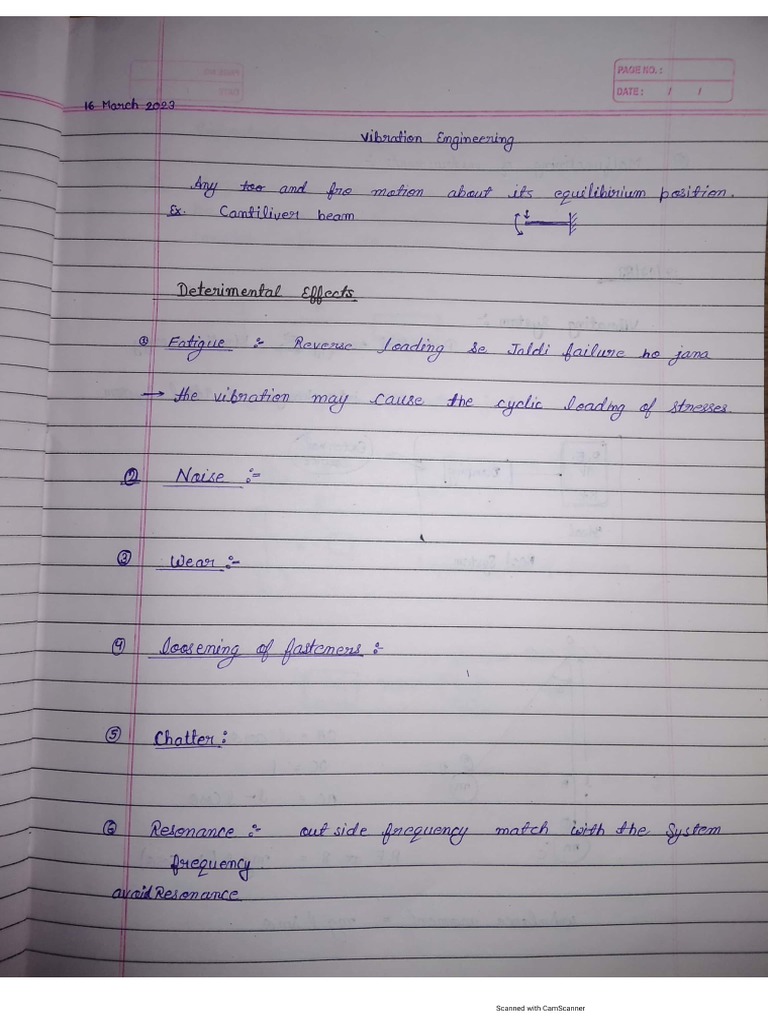 PAGE NO. :
DATE : / /
16 March 2023
Vibration Engineering
Any too and fro motion about its equilibirium position.
Ex. Cantiliver beam
Deterimental Effects
① Fatigue :- Reverse loading se Jaldi failure ho jana
→ the vibration may cause the cyclic loading of stresses.
② Noise :-
③ Wear :-
④ loosening of fasteners :-
⑤ Chatter :
⑥ Resonance :- out side frequency match with the System
frequency.
avoid Resonance
Scanned with CamScanner